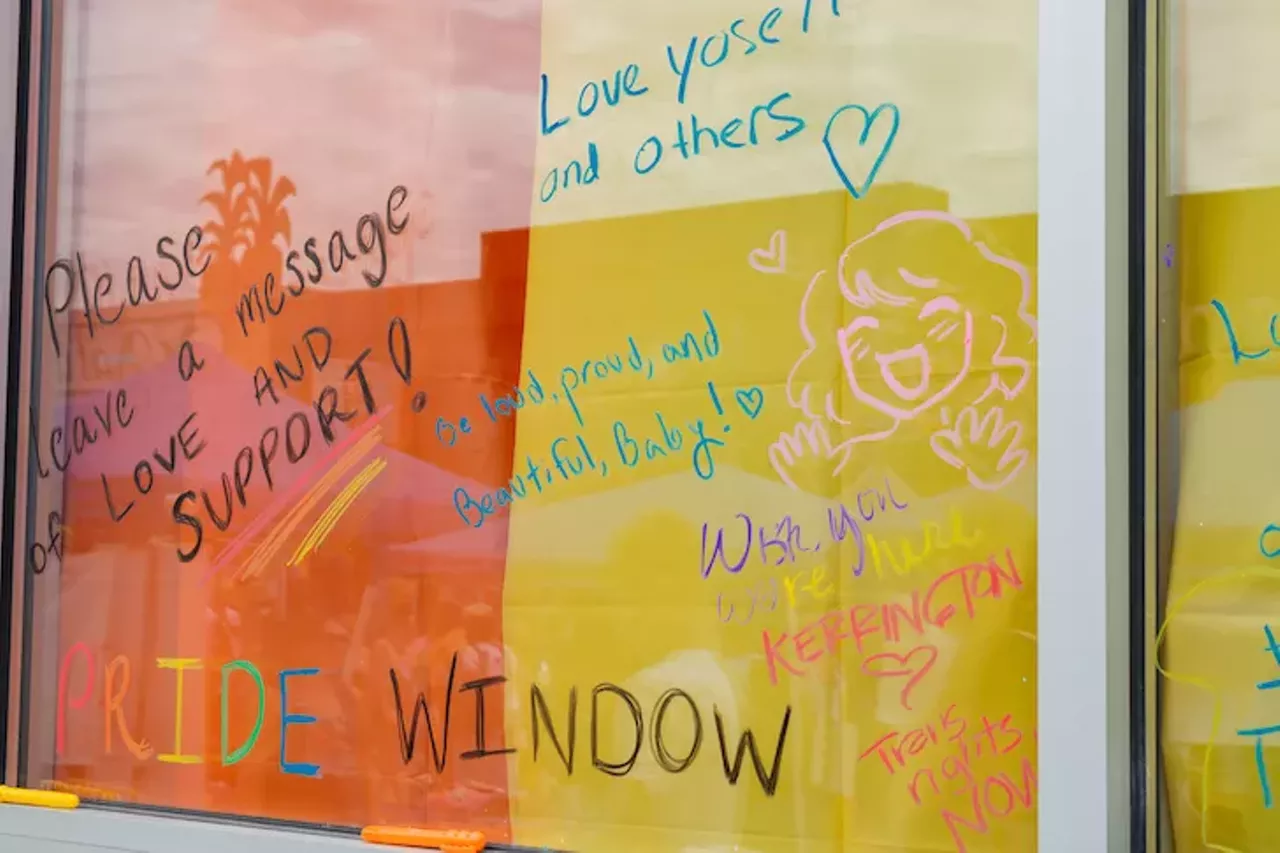 Love yoself
and others
Please
leave a message
of LOVE AND
SUPPORT!
Be loud, proud, and
Beautiful, Baby!
Wish you
were here
KERRINGTON
Trans
rights
NOW
PRIDE WINDOW